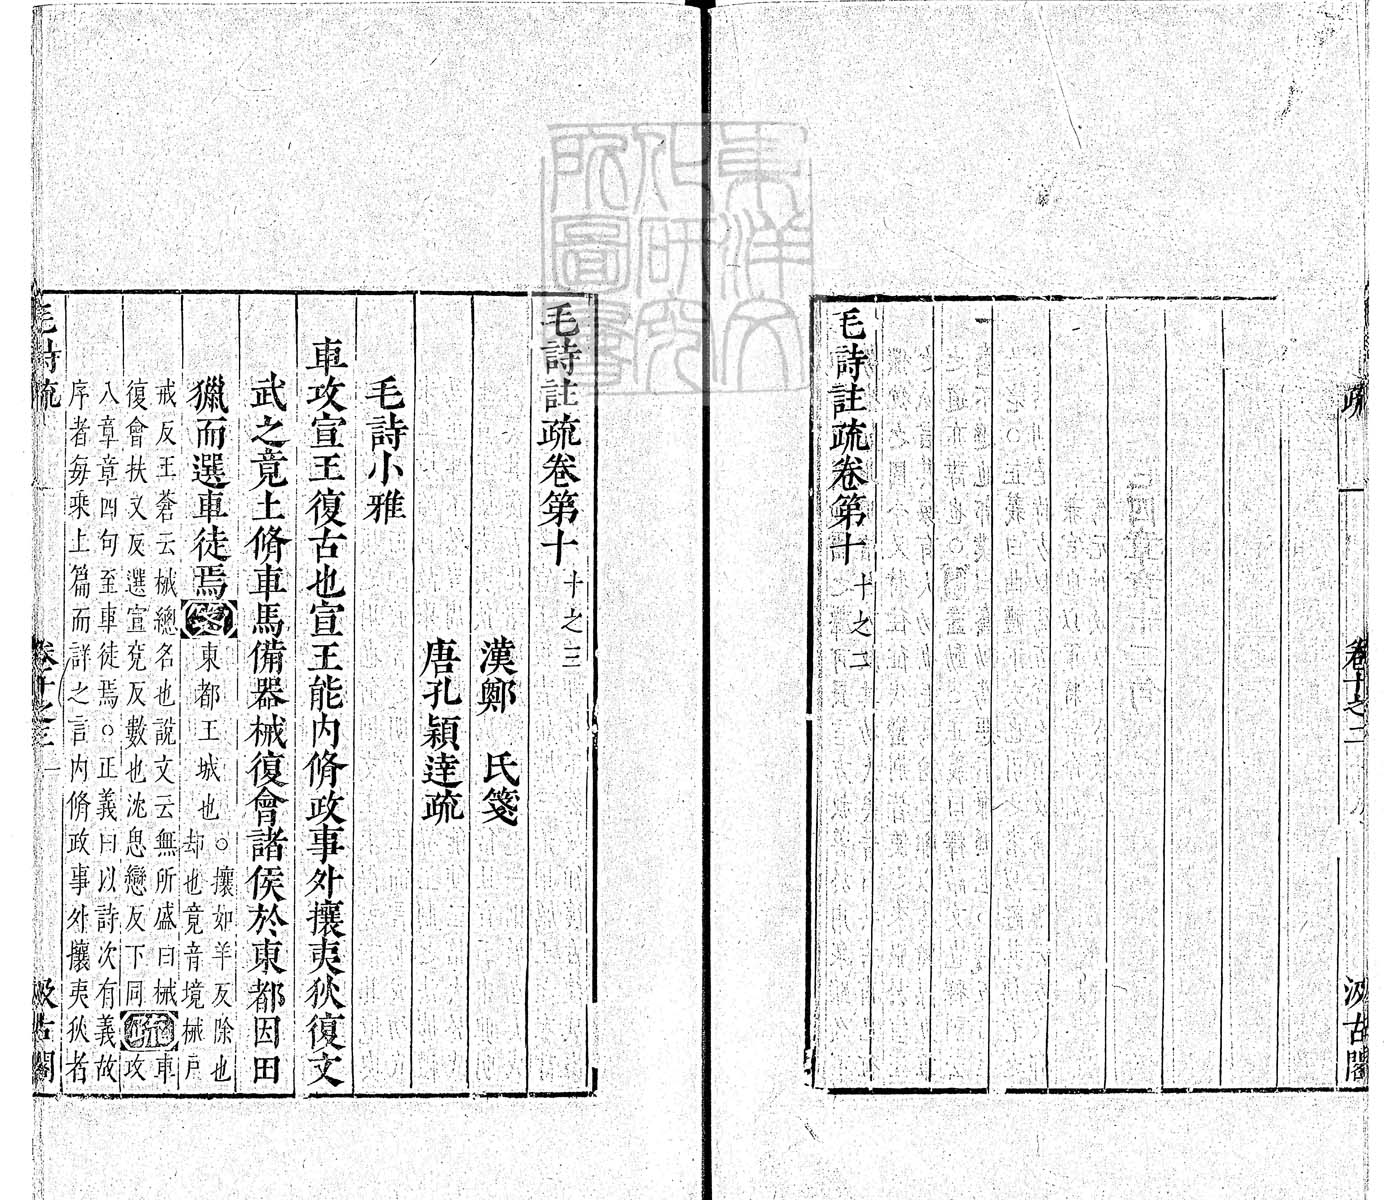 疏
卷十之二
汲古閣
毛詩註疏卷第十 十之二
東洋文
化研究
所圖書
毛詩註疏卷第十 十之三
漢鄭 氏箋
唐孔穎達疏
毛詩小雅
車攻宣王復古也宣王能內脩政事外攘夷狄復文
武之竟土脩車馬備器械復會諸侯於東都因田
獵而選車徒焉箋東都王城也○攘如羊反除也
却也竟音境械戶
戒反王蒼云械總名也說文云無所盛曰械車
復會扶又反選宣兗反數也沈思戀反下同疏攻
八章章四句至車徒焉○正義曰以詩次有義故
序者每乘上篇而詳之言內脩政事外攘夷狄者
毛詩疏
卷十之三
一
汲古閣